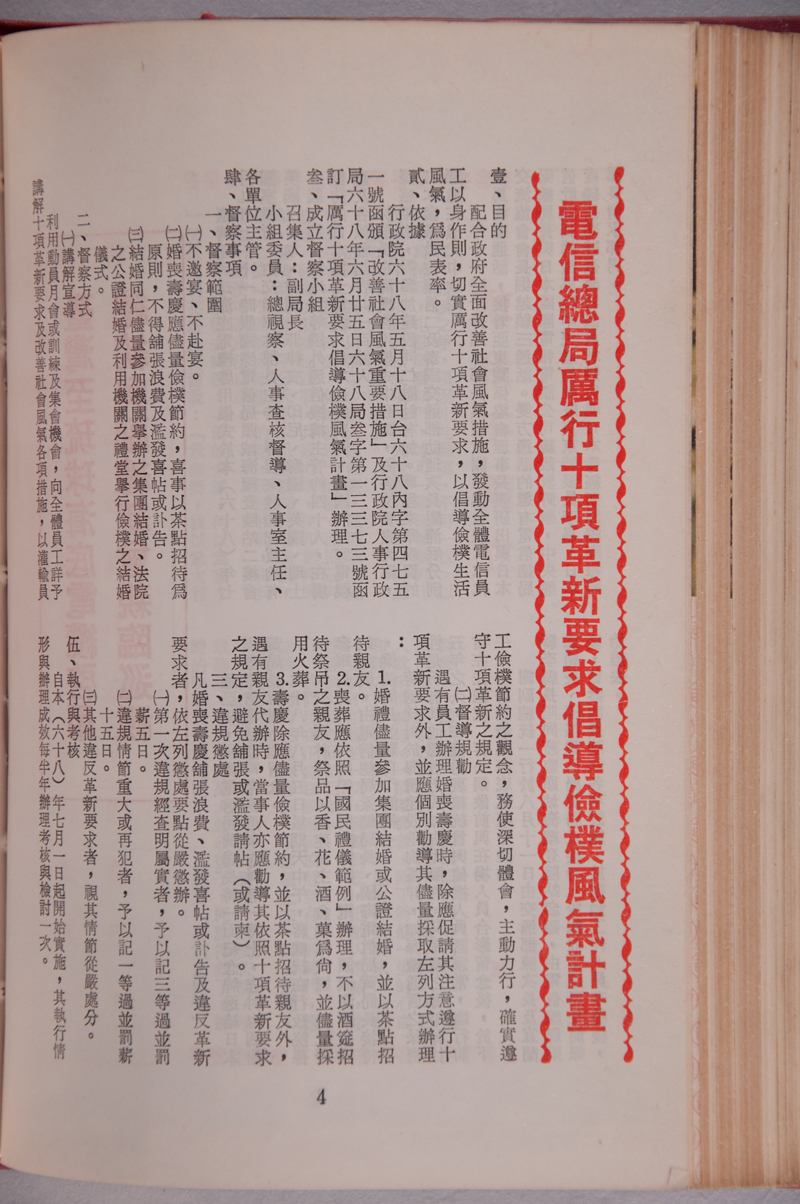 電信總局厲行十項革新要求倡導儉樸風氣計畫
壹、目的
配合政府全面改善社會風氣措施，發動全體電信員
工以身作則，切實厲行十項革新要求，以倡導儉樸生活
風氣，爲民表率。
貳、依據
行政院六十八年五月十八日台六十八內字第四七五
一號函頒「改善社會風氣重要措施」及行政院人事行政
局六十八年六月廿五日六十八局叁字第一三三七三號函
訂「厲行十項革新要求倡導儉樸風氣計畫」辦理。
叁、成立督察小組
召集人：副局長
小組委員：總視察、人事查核督導、人事室主任、
各單位主管。
肆、督察事項
一、督察範圍
㈠不邀宴、不赴宴。
㈡婚喪壽慶應儘量儉樸節約，喜事以茶點招待爲
原則，不得舖張浪費及濫發喜帖或訃告。
㈢結婚同仁儘量參加機關舉辦之集團結婚、法院
之公證結婚及利用機關之禮堂舉行儉樸之結婚
儀式。
二、督察方式
㈠講解宣導
利用動員月會或訓練及集會機會，向全體員工詳予
講解十項革新要求及改善社會風氣各項措施，以灌輸員
工儉樸節約之觀念，務使深切體會，主動力行，確實遵
守十項革新之規定。
㈡督導規勸
遇有員工辦理婚喪壽慶時，除應促請其注意遵行十
項革新要求外，並應個別勸導其儘量採取左列方式辦理
：
1.婚禮儘量參加集團結婚或公證結婚，並以茶點招
待親友。
2.喪葬應依照「國民禮儀範例」辦理，不以酒筵招
待祭弔之親友，祭品以香、花、酒、菓爲尙，並儘量採
用火葬。
3.壽慶除應儘量儉樸節約，並以茶點招待親友外，
遇有親友代辦時，當事人亦應勸導其依照十項革新要求
之規定，避免舖張或濫發請帖（或請柬）。
三、違規懲處
凡婚喪壽慶舖張浪費、濫發喜帖或訃告及違反革新
要求者，依左列懲處要點從嚴懲辦。
㈠第一次違規經查明屬實者，予以記三等過並罰
薪五日。
㈡違規情節重大或再犯者，予以記一等過並罰薪
十五日。
㈢其他違反革新要求者，視其情節從嚴處分。
伍、執行與考核
自本（六十八）年七月一日起開始實施，其執行情
形與辦理成效每半年辦理考核與檢討一次。
4